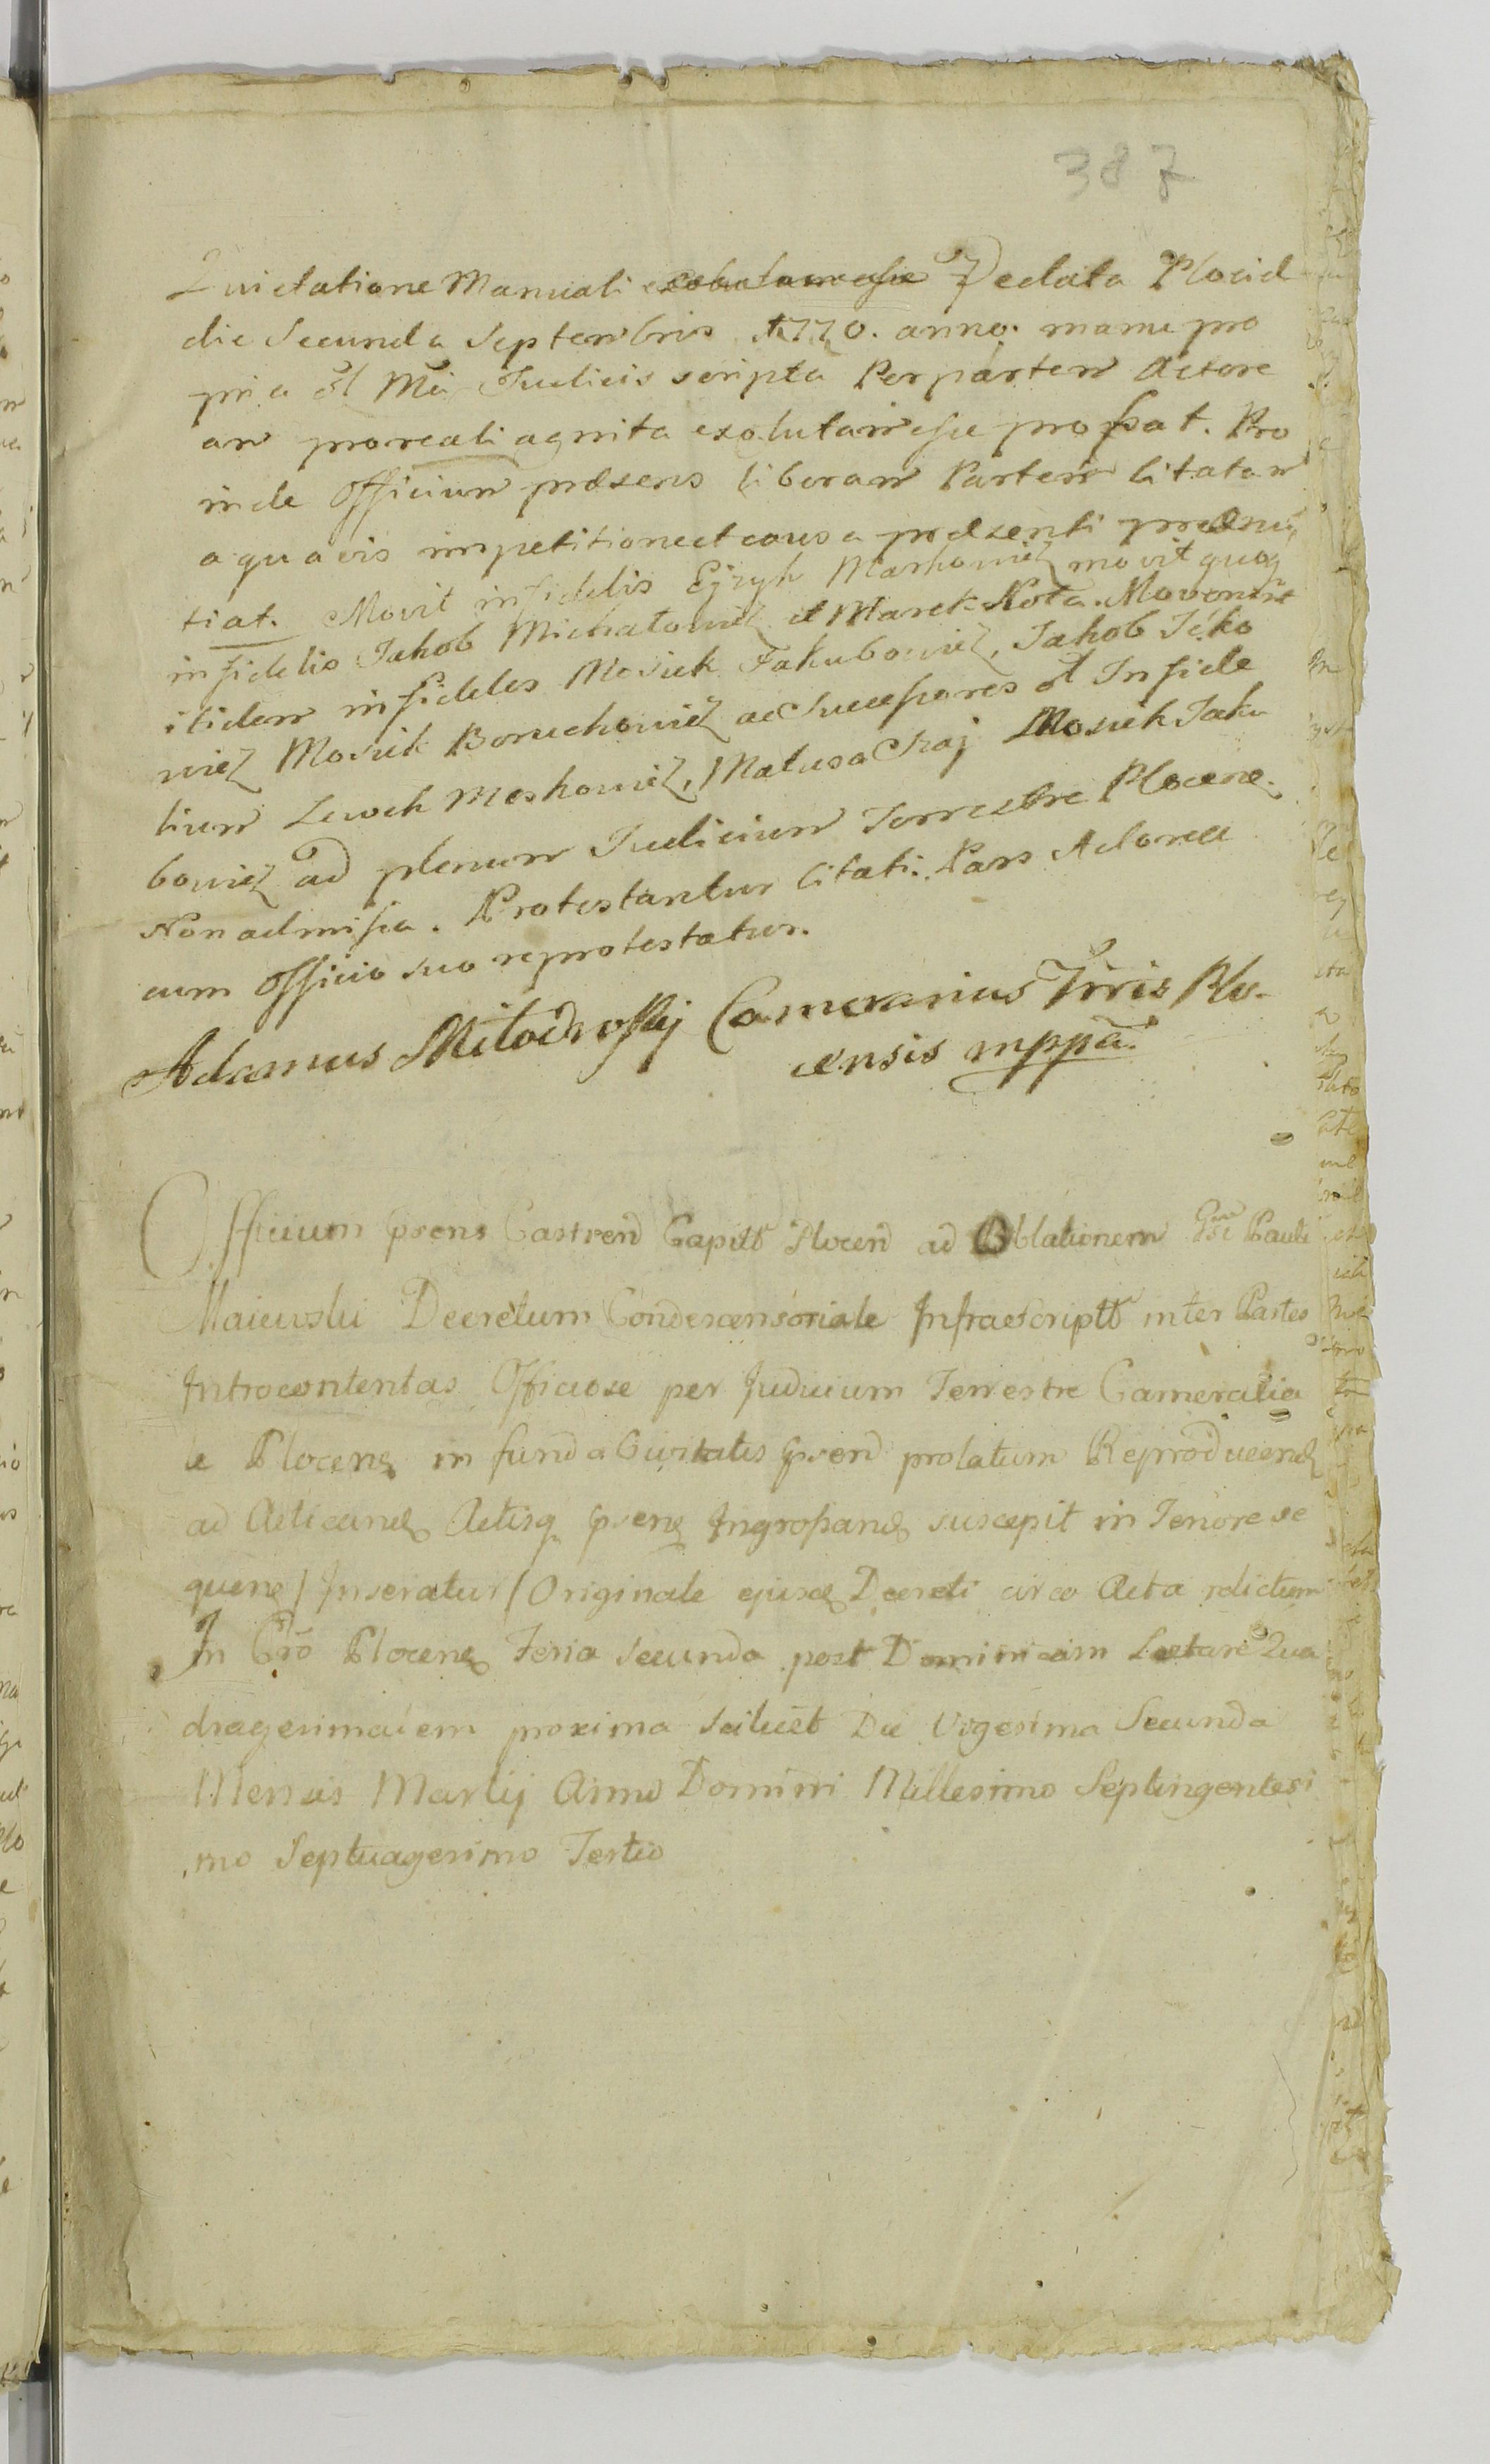 387
Quietatione Manuali exolutam esse Dedata Plocid
die Secunda Septembris 1770. anno. manu pro
pria Mci Judicis scripta Per partem Actore
am pro reali agnita exolutam esse probat. Pro
inde Officium præsens liberam Partem Citatam
a quavis impetitione et causa præsenti prænū
tiat. Movit infidelis Eyzyk Markowicz movit quoq
infidelis Jakob Michałowicz et Marek Nota. Moverūt
itidem infideles Mosiek Jakubowicz, Jakob Icko
wicz Mosiek Boruchowicz ac Successores Infide
lium Lewek Moskowicz, Matusa Chaj Mosiek Jaku
bowicz ad plenum Judicium Terrestre Plocens.
Non admissa. Protestantur Citati. Pars Actorea
cum Officio suo reprotestatur.
Adamus Miłodroski Camerarius Trris Plo-
censis mppa.
Officium psens Castren Capitl Plocen ad Oblationem Gsi Pauli
Maiewski Decretum Condescensoriale Infrascriptt inter Partes
Introcontentas Officiose per Judicium Terrestre Cameralia
le Plocens in funda Civitatis psen prolatum Reproducend
ad Acticand Actisq psens Ingrossand suscepit in Tenore se
quens / Inseratur / Originale ejusd Decreti circa Acta relictum
In Cro Plocens Feria Secunda post Dominicam Laetare Qua
dragesimalem proxima scilicet Die Vigesima Secunda
Mensis Martij Anno Domini Millesimo Septingentesi
mo Septuagesimo Tertio